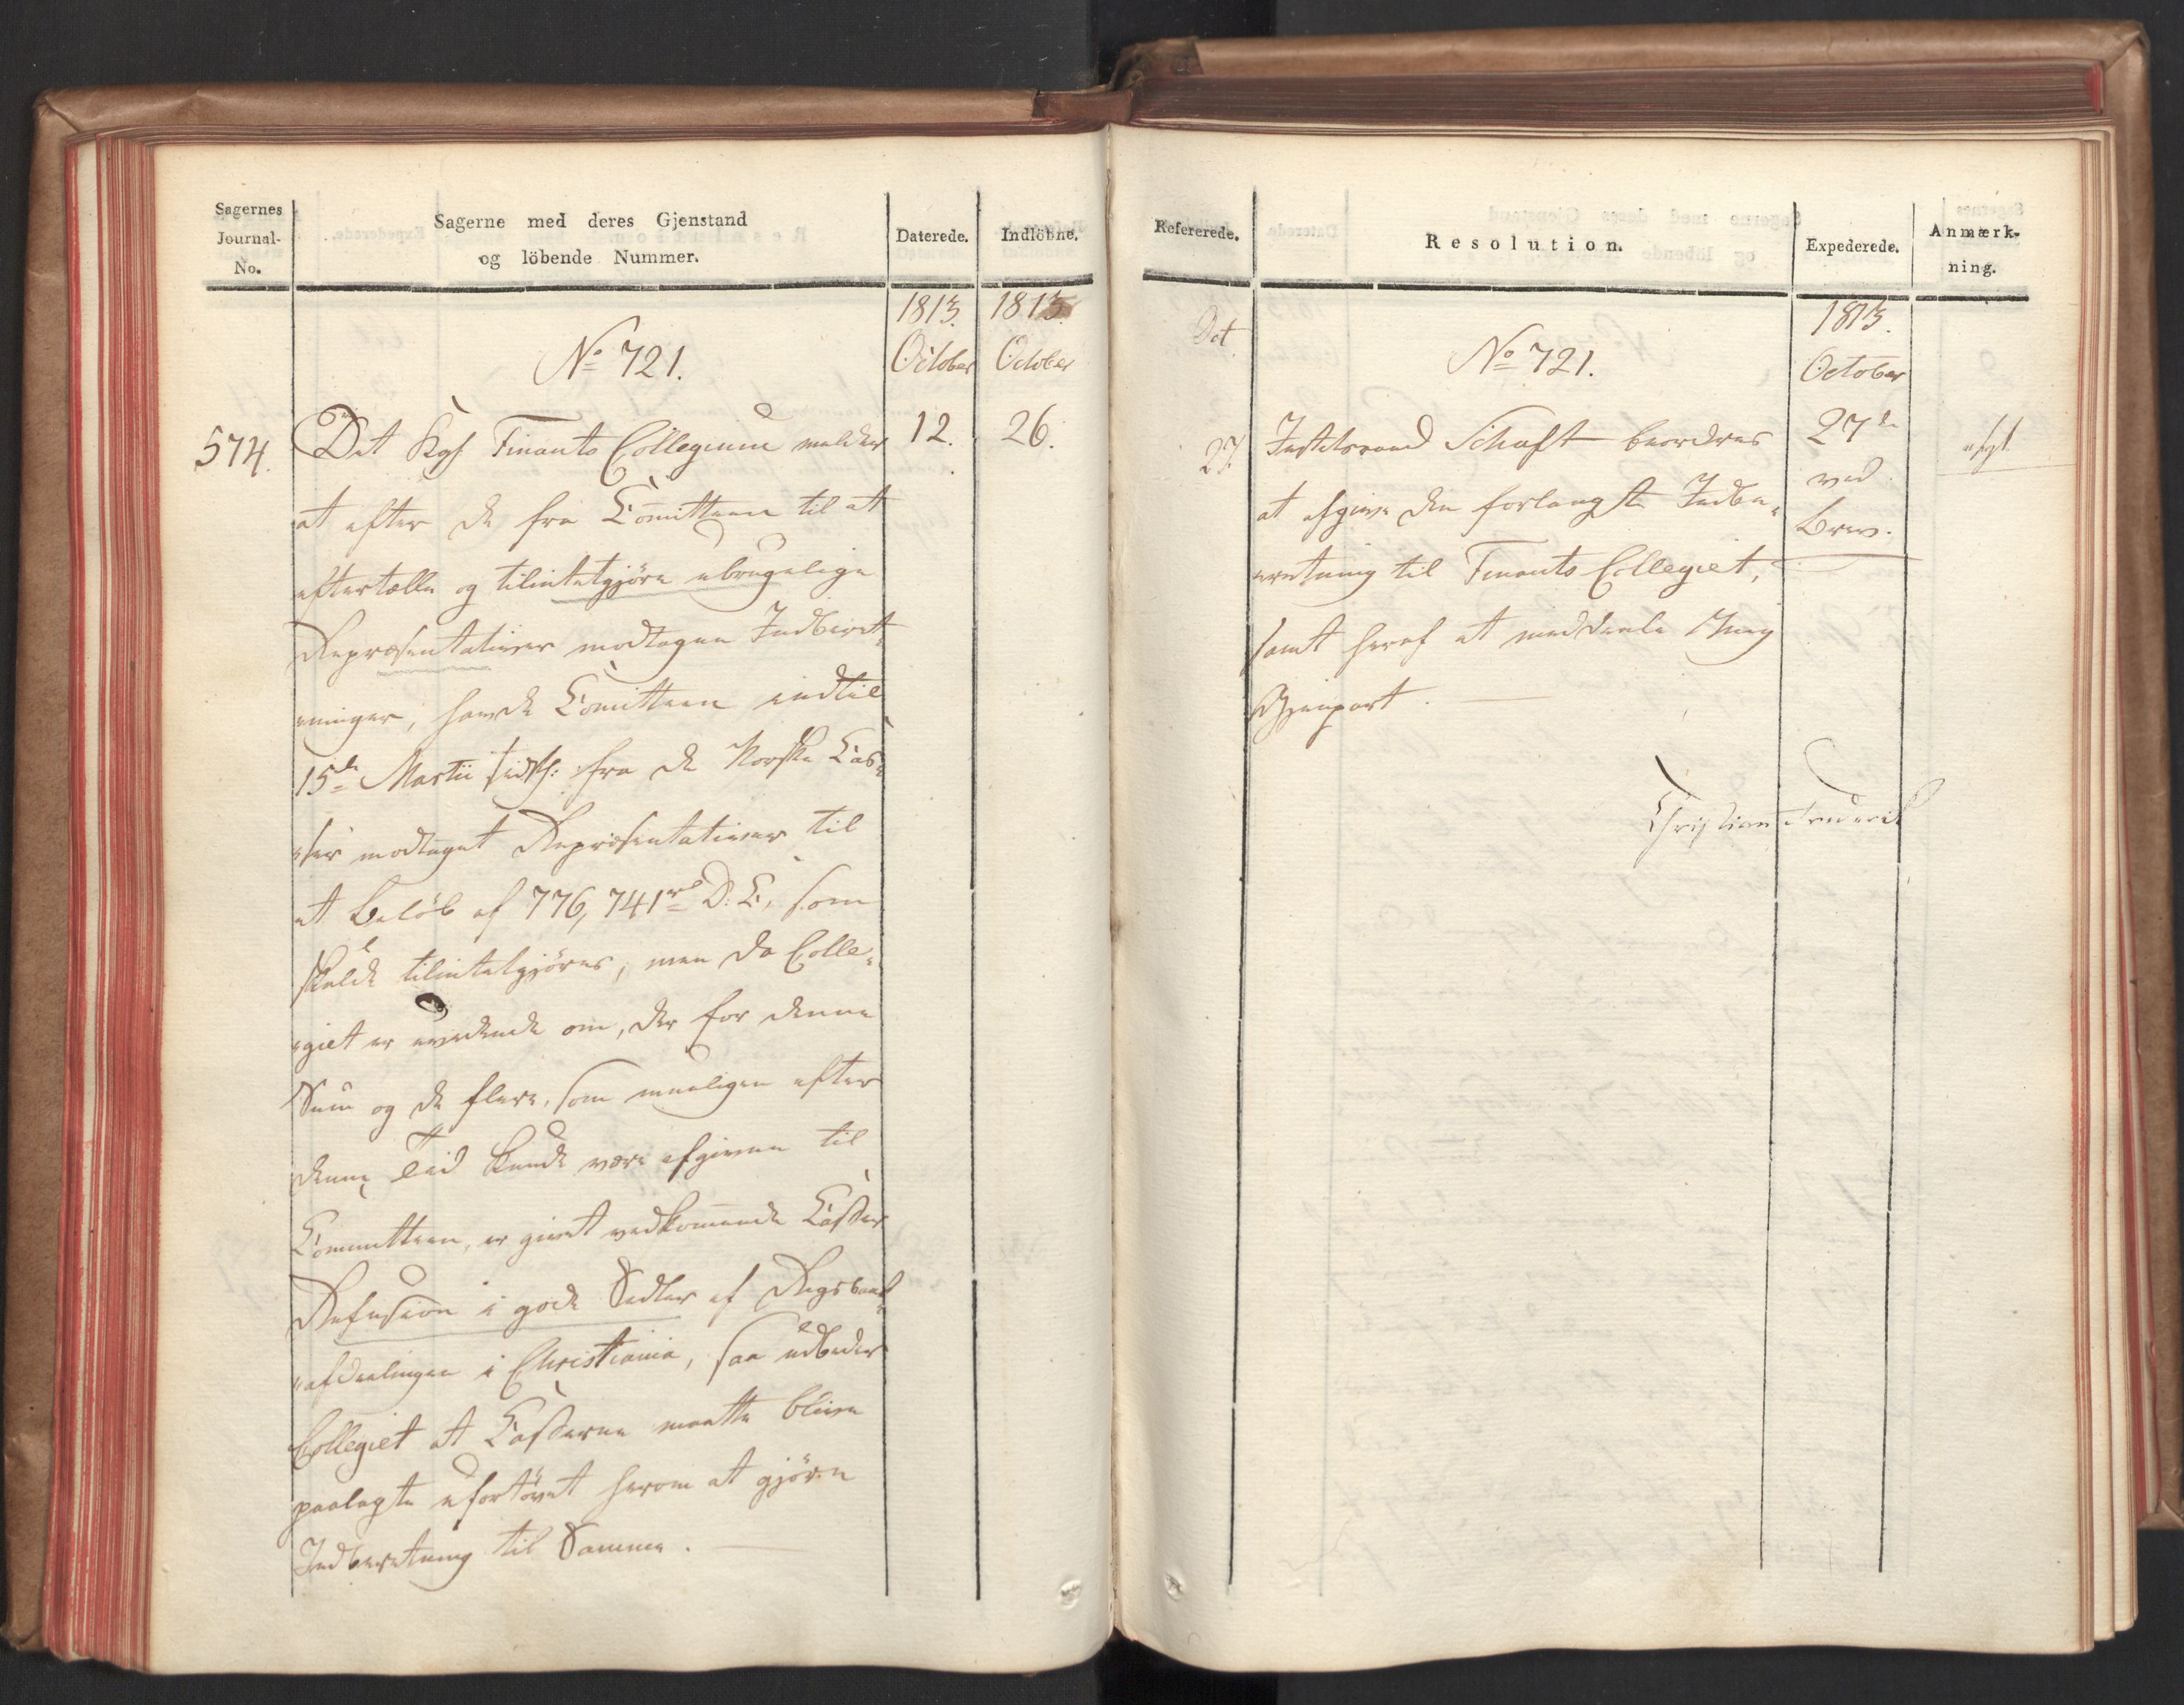 Sagernes
Journal-
No.
Sagerne med deres Gjenstand
og löbende Nummer.
Daterede.
Indlöbne.
1813.
October
1813.
October
No 721.
574.
12.
26.
Det Kgl Finants Collegium melder
at efter de fra Comitteen til at
eftertælle og tilintetgjöre ubrugelige
Repræsentativer modtagne Indberet-
ninger, havde Comitteen indtil
15de Martii sidstl: fra de Norske Cas-
ser modtaget Repræsentativer til
et Belöb af 776,741 rd D: C, som
skulde tilintetgjöres, men da Colle-
giet er uvidende om, der for denne
Sum og de flere, som mueligen efter
denne Tid kunde være afgivne til
Committeen, er givet vedkommende Casser
Refusion i gode Sedler af Rigsbank-
afdeelingen i Christiania, saa udbeder
Collegiet at Casserne maatte blive
paalagte ufortövet herom at gjöre
Indberetning til Samme.
Refererede.
Resolution.
Expederede.
Anmærk-
ning.
Oct.
27.
No 721.
1813.
October
27de
ved
Brev.
Justitsraad Schaft beordres
at afgive den forlangte Indbe-
retning til Finants Collegiet,
samt heraf at meddeele Mig
Gjenpart.
Christian Frederik